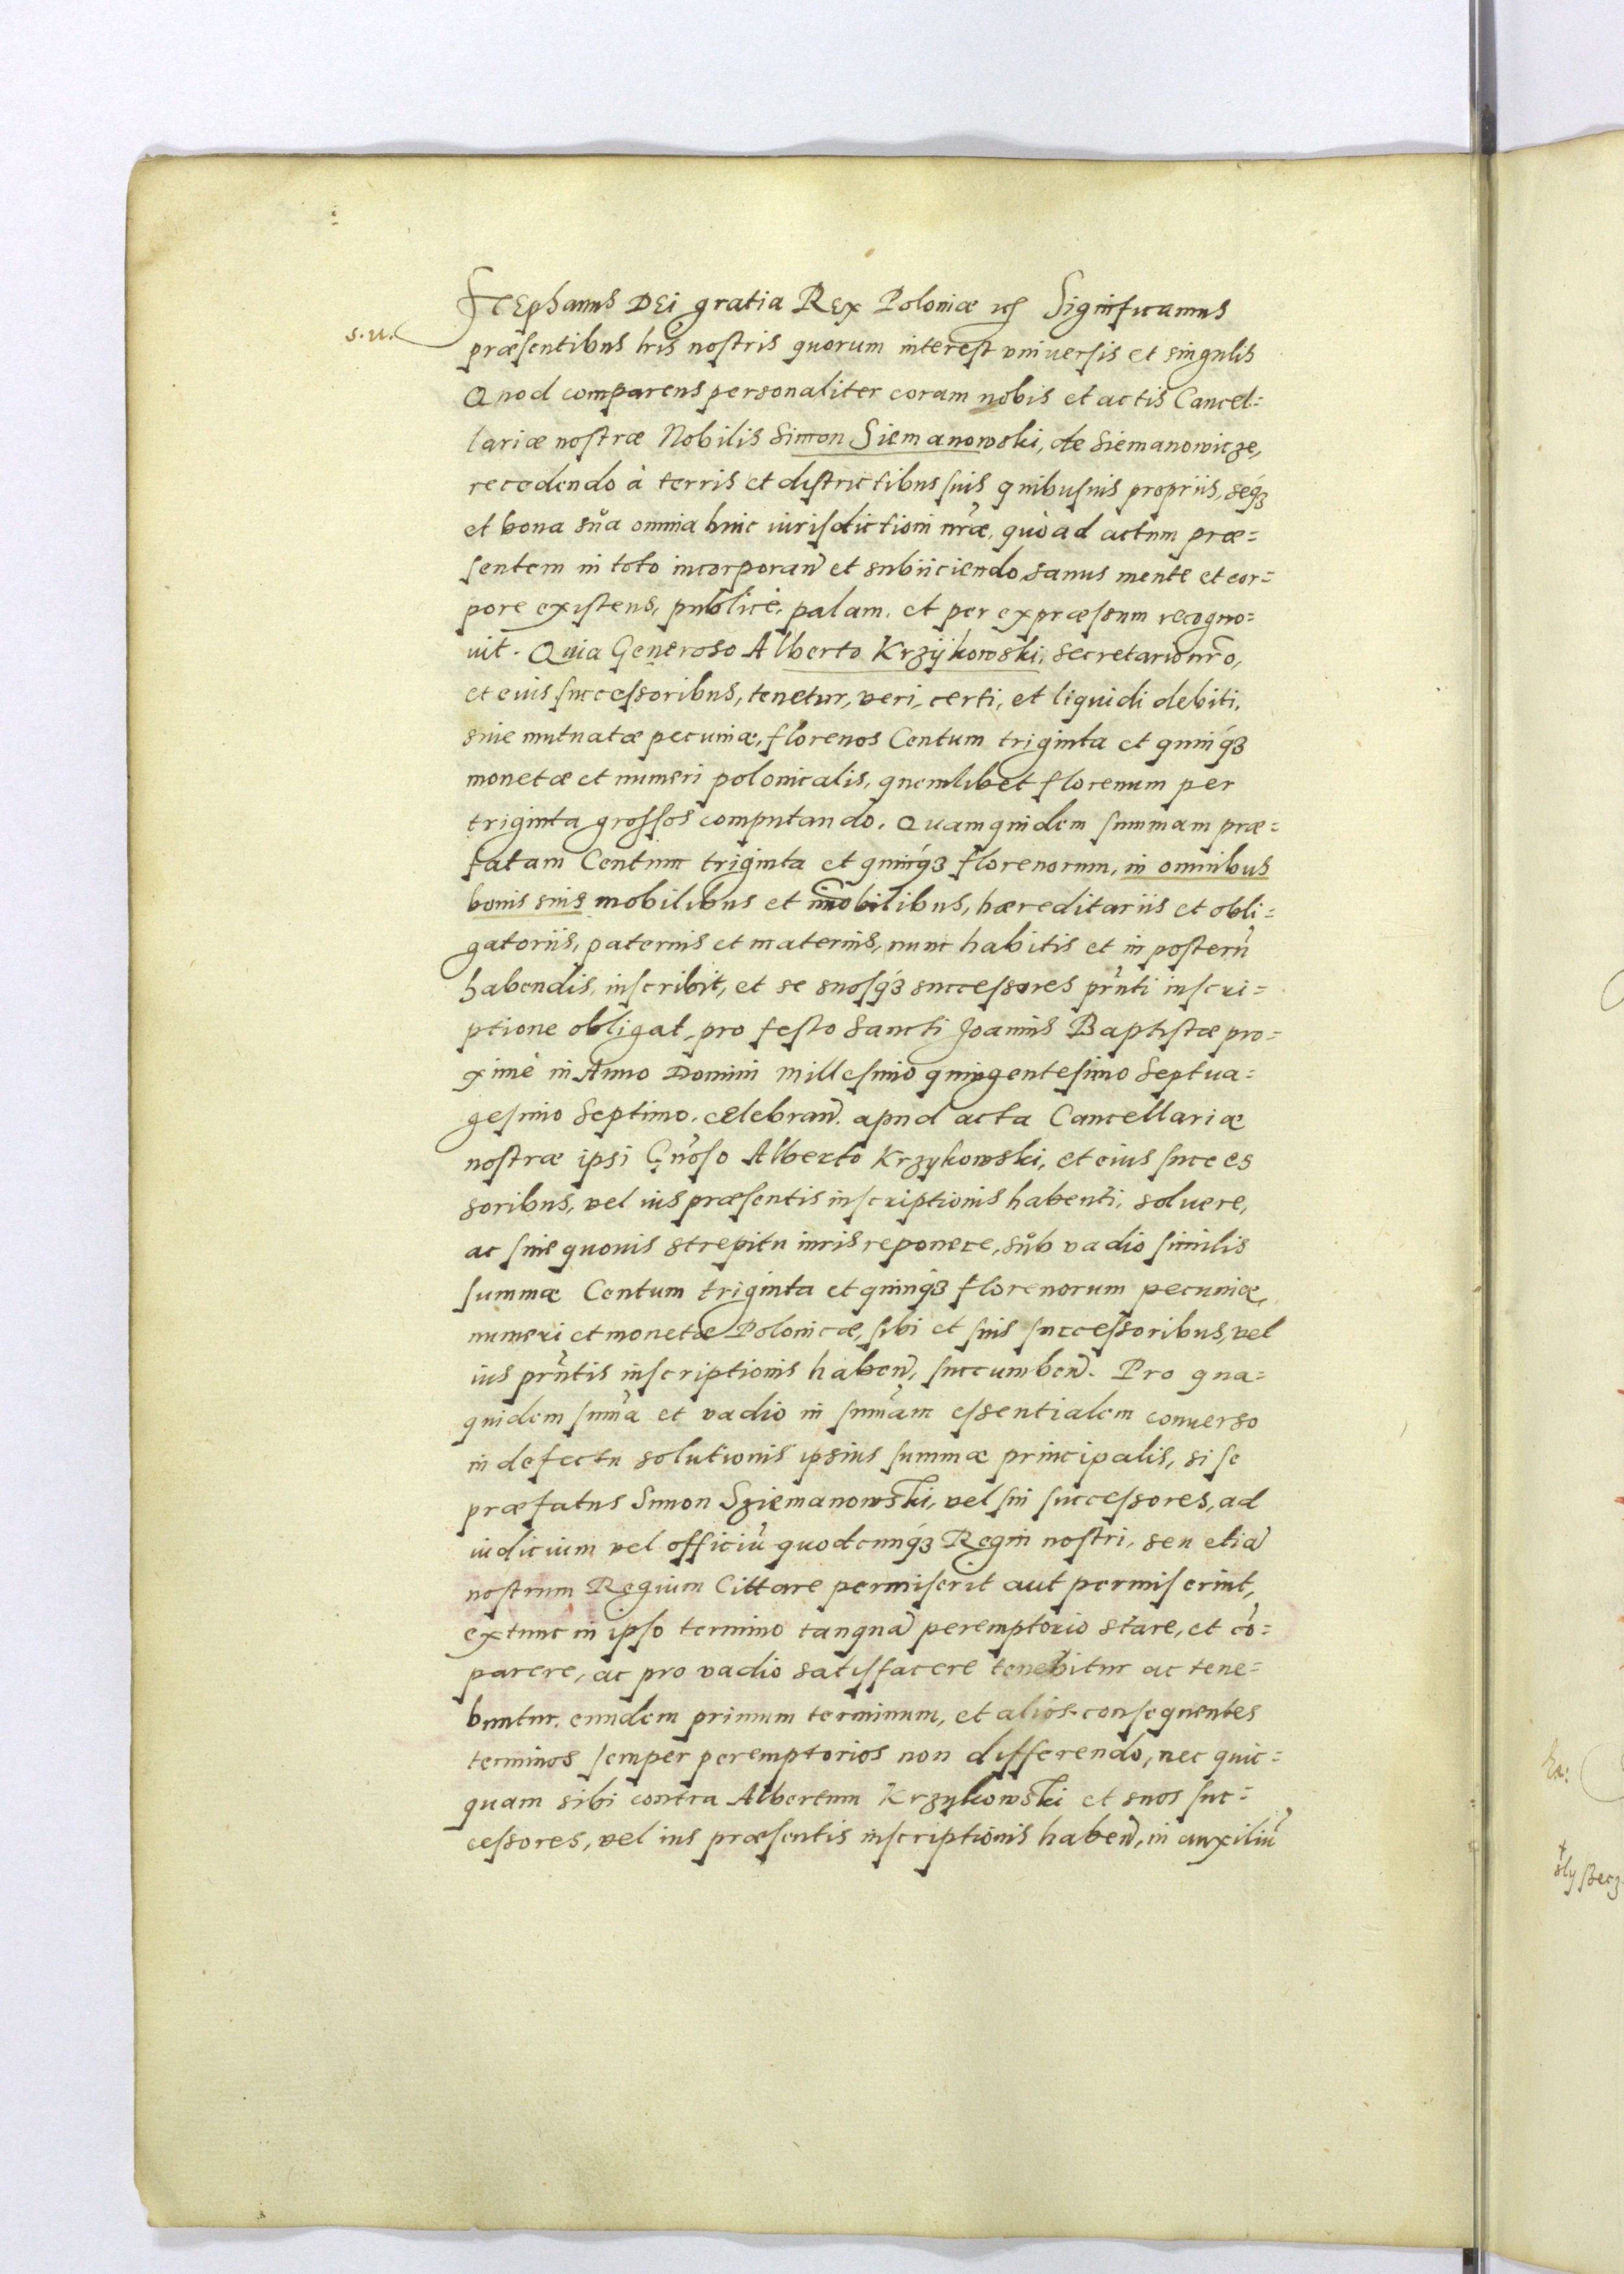 Stephanus Dei gratia Rex Poloniæ etc Significamus
s.u.
præsentibus lr̃is nostris quorum interest vniuersis et singulis
Quod comparens personaliter coram nobis et actis Cancel=
lariæ nostræ Nobilis Simon Siemanowski, de Siemanowicze,
recedendo à terris et districtibus suis quibusuis propriis, seq́ꝫ
et bona sua omnia huic iurisdictioni nr̃æ, quò ad actum præ=
sentem in toto incorporan̄ et subiiciendo, sanus mente et cor=
pore existens, publicè, palam, et per expræssum recogno=
uit. Quia Generoso Alberto Krzÿkowski, secretario nr̃o,
et eius successoribus, tenetur, veri, certi, et liquidi debiti,
siue mutuatæ pecuniæ, florenos Centum triginta et quinq́ꝫ
monetæ et numeri polonicalis, quemlibet florenum per
triginta grossos computando. Quamquidem summam præ=
fatam Centum triginta et quinq́ꝫ florenorum, in omnibus
bonis suis mobilibus et im̄obilibus, hæreditariis et obli=
gatoriis, paternis et maternis, nunc habitis et in posterū
habendis, inscribit, et se suosq́ꝫ successores pr̃nti inscri=
ptione obligat, pro festo Sancti Joannis Baptistæ pro=
ximè in Anno Domini Millesimo quingentesimo Septua=
gesimo Septimo. celebran̄. apud acta Cancellariæ
nostræ ipsi Gn̄oso Alberto Krzykowski, et eius succes
soribus, vel ius præsentis inscriptionis habenti, soluere,
ac sine quouis strepitu iuris reponere, sub vadio similis
summæ Centum triginta et quinq́ꝫ florenorum pecuniæ,
numeri et monetæ Polonicæ, sibi et suis successoribus, vel
ius pr̃ntis inscriptionis haben̄, succumben̄. Pro qua=
quidem sum̄a et vadio in sum̄am essentialem conuerso
in defectu solutionis ipsius summæ principalis, si se
præfatus Simon Sziemanowski, vel sui successores, ad
iudicium vel officiū quodcunq́ꝫ Regni nostri, seu etiā
nostrum Regium Cittare permiserit aut permiserint,
extunc in ipso termino tanquā peremptorio stare, et cō=
parere, ac pro vadio satisfacere tenebitur ac tene=
buntur. eundem primum terminum, et alios consequentes
terminos semper peremptorios non differendo, nec quic=
quam sibi contra Albertum Krzykowski et suos suc=
cessores, vel ius præsentis inscriptionis haben̄, in auxiliū